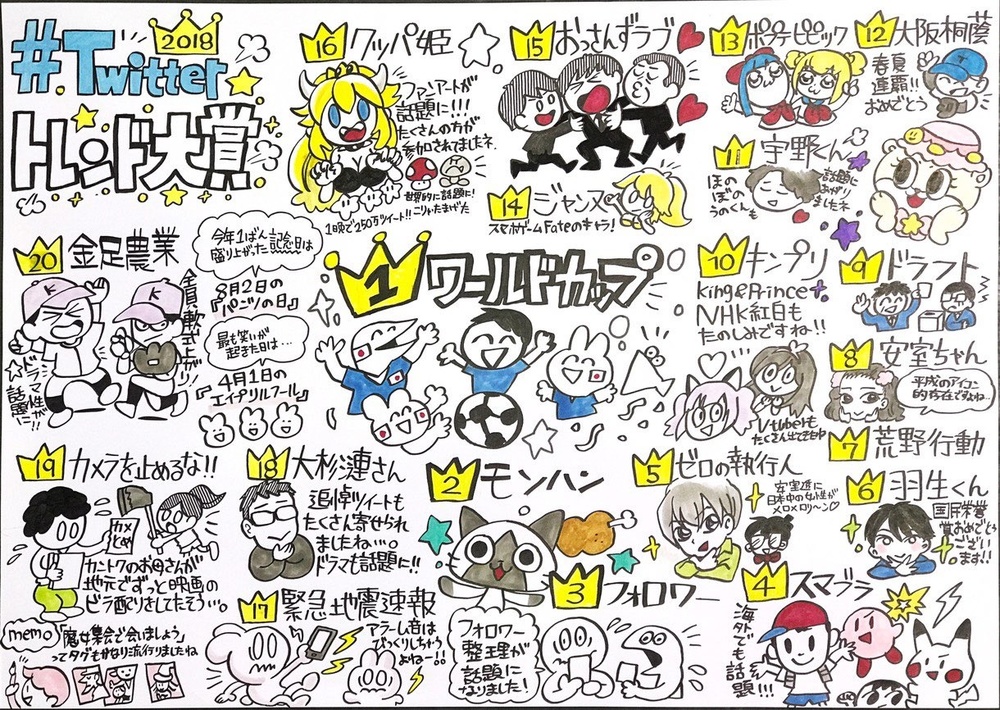 2018
#Twitter
トレンド大賞
16 クッパ姫
ファンアートが
話題に!!!
たくさんの方が
参加されてましたネ.
世界的に話題に!
1晩で250万ツイート!!こりゃたまげた
15 おっさんずラブ
14 ジャンヌ
スマホゲームFateのキャラ!
13 ポプテピピック
12 大阪桐蔭
春夏
連覇!!
おめでとう
11 宇野くん
ほの
ぼの
うのくんも
話題に
あがり
ましたネ
20 金足農業
全員軟式上がり!
ドラマ性が
話題に!!
今年1ばん
盛り上がった記念日は
8月2日の
『パンツの日』
最も笑いが
起きた日は…
4月1日の
『エイプリルフール』
1 ワールドカップ
10 キンプリ
King&Prince
NHK紅白も
たのしみですね!!
Vtuberも
たくさん出てきたね
9 ドラフト
8 安室ちゃん
平成のアイコン
的存在ですよね…
7 荒野行動
6 羽生くん
国民栄誉
賞おめでとう
ござい
ます!!
19 カメラを止めるな!!
カメ
とめ
カントクのお母さんが
地元でずっと映画の
ビラ配りをしてたそう…。
memo 「魔女集会で会いましょう」
ってタグもかなり流行りましたね
18 大杉漣さん
追悼ツイートも
たくさん寄せられ
ましたね…。
ドラマも話題に!!
17 緊急地震速報
アラーム音は
びっくりしちゃう
よねー!!
2 モンハン
3 フォロワー
フォロワー
整理が
話題に
なりました!
5 ゼロの執行人
安室透に
日本中の女性が
メロメロリ〜ン♡
4 スマブラ
海外でも
話題!!!